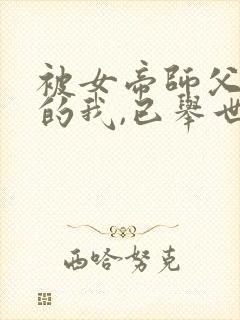 被女帝師父
的我,已舉世
西哈努克